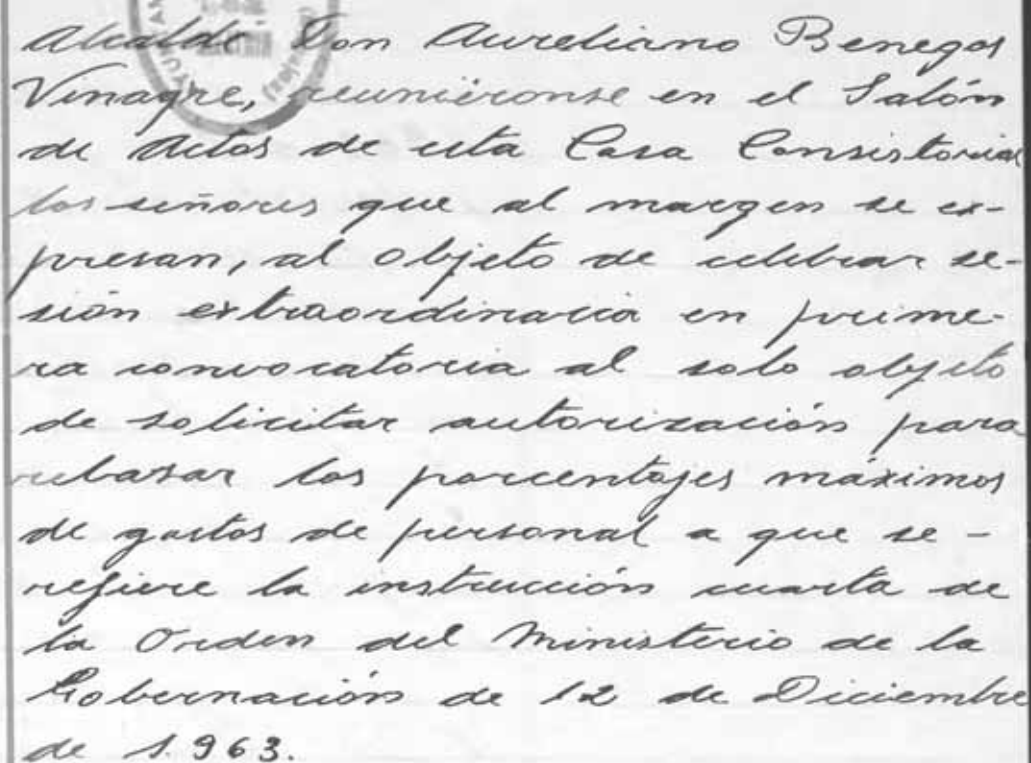 Alcalde Don Aureliano Benegas
Vinagre, reuniéronse en el Salón
de Actos de esta Casa Consistorial
los señores que al margen se ex-
presan, al objeto de celebrar se-
sión extraordinaria en prime-
ra convocatoria al solo objeto
de solicitar autorización para
rebasar los porcentajes máximos
de gastos de personal a que se-
refiere la instrucción cuarta de
la Orden del Ministerio de la
Gobernación de 12 de Diciembre
de 1.963.